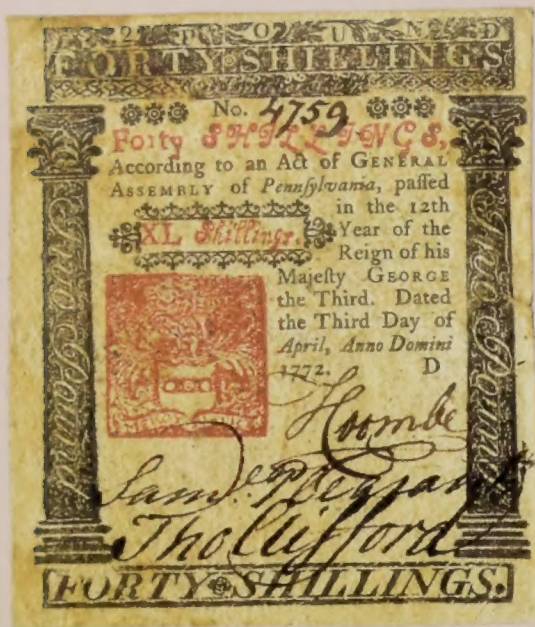 2 POUND
FORTY SHILLINGS
No. 4759
Forty SHILLINGS,
According to an Act of GENERAL
ASSEMBLY of Pennſylvania, paſſed
in the 12th
XL Shillings.
Year of the
Reign of his
Majeſty GEORGE
the Third. Dated
the Third Day of
April, Anno Domini
1772. D
Two Pound
Two Pound
MERCY
Samˡ. Pleasants
Tho Clifford
FORTY SHILLINGS.